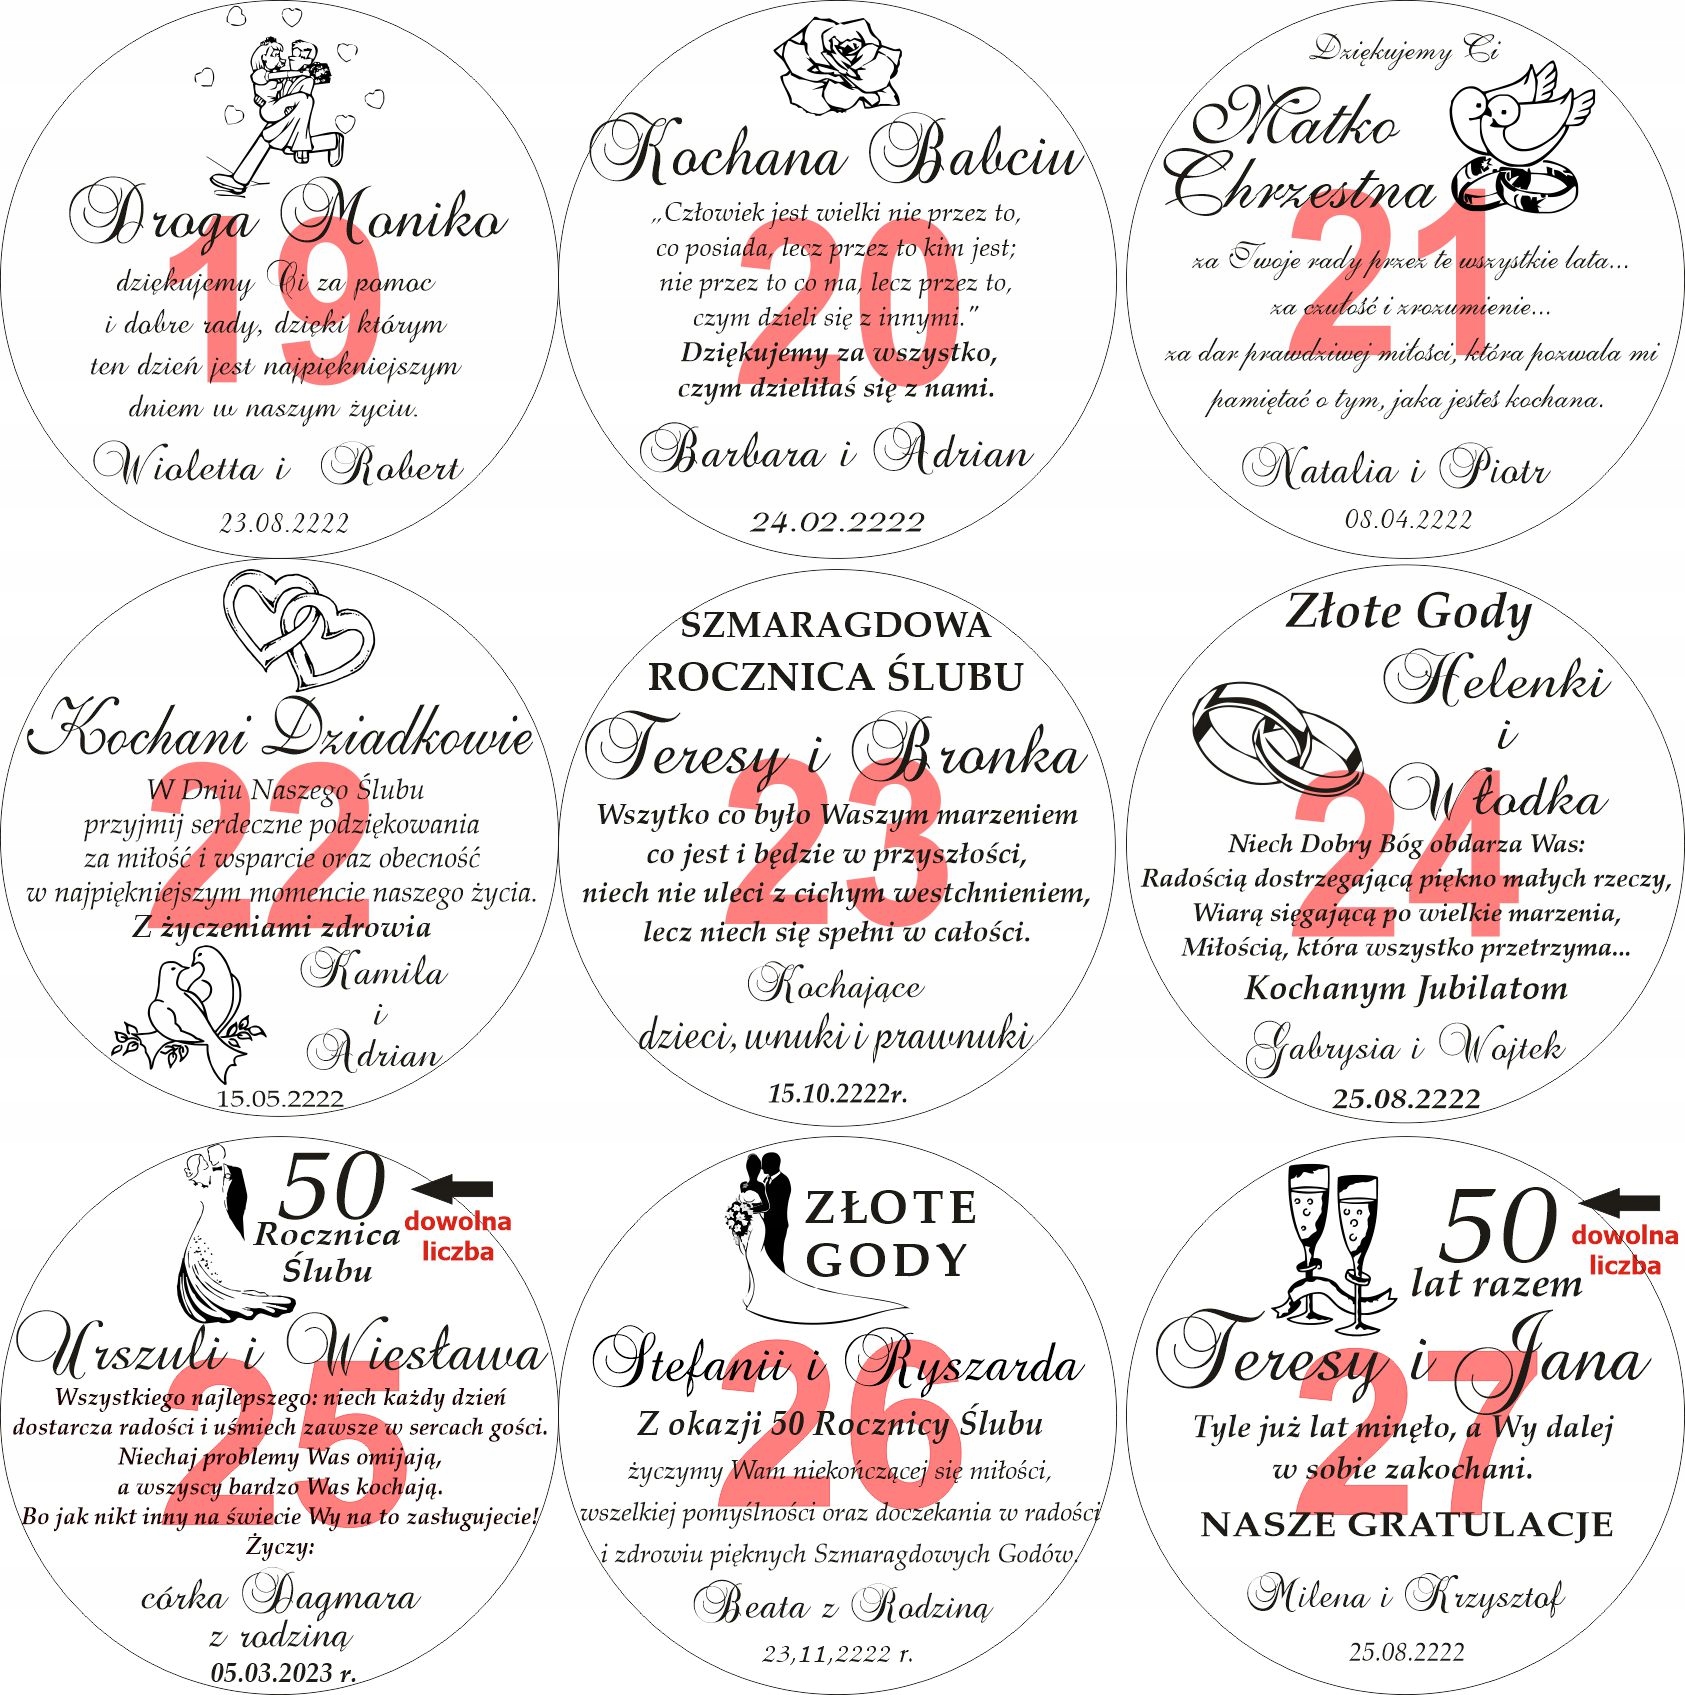 Droga Moniko
dziękujemy Ci za pomoc
i dobre rady, dzięki którym
ten dzień jest najpiękniejszym
dniem w naszym życiu.
Wioletta i Robert
23.08.2222
19
Kochana Babciu
„Człowiek jest wielki nie przez to,
co posiada, lecz przez to kim jest;
nie przez to co ma, lecz przez to,
czym dzieli się z innymi.”
Dziękujemy za wszystko,
czym dzieliłaś się z nami.
Barbara i Adrian
24.02.2222
20
Dziękujemy Ci
Matko
Chrzestna
za Twoje rady przez te wszystkie lata...
za czułość i zrozumienie...
za dar prawdziwej miłości, która pozwala mi
pamiętać o tym, jaka jesteś kochana.
Natalia i Piotr
08.04.2222
21
Kochani Dziadkowie
W Dniu Naszego Ślubu
przyjmij serdeczne podziękowania
za miłość i wsparcie oraz obecność
w najpiękniejszym momencie naszego życia.
Z życzeniami zdrowia
Kamila
i
Adrian
15.05.2222
22
SZMARAGDOWA
ROCZNICA ŚLUBU
Teresy i Bronka
Wszytko co było Waszym marzeniem
co jest i będzie w przyszłości,
niech nie uleci z cichym westchnieniem,
lecz niech się spełni w całości.
Kochające
dzieci, wnuki i prawnuki
15.10.2222r.
23
Złote Gody
Helenki
i
Włodka
Niech Dobry Bóg obdarza Was:
Radością dostrzegającą piękno małych rzeczy,
Wiarą sięgającą po wielkie marzenia,
Miłością, która wszystko przetrzyma...
Kochanym Jubilatom
Gabrysia i Wojtek
25.08.2222
24
50
Rocznica
Ślubu
dowolna
liczba
Urszuli i Wiesława
Wszystkiego najlepszego: niech każdy dzień
dostarcza radości i uśmiech zawsze w sercach gości.
Niechaj problemy Was omijają,
a wszyscy bardzo Was kochają.
Bo jak nikt inny na świecie Wy na to zasługujecie!
Życzy:
córka Dagmara
z rodziną
05.03.2023 r.
25
ZŁOTE
GODY
Stefanii i Ryszarda
Z okazji 50 Rocznicy Ślubu
życzymy Wam niekończącej się miłości,
wszelkiej pomyślności oraz doczekania w radości
i zdrowiu pięknych Szmaragdowych Godów.
Beata z Rodziną
23,11,2222 r.
26
50
lat razem
dowolna
liczba
Teresy i Jana
Tyle już lat minęło, a Wy dalej
w sobie zakochani.
NASZE GRATULACJE
Milena i Krzysztof
25.08.2222
27